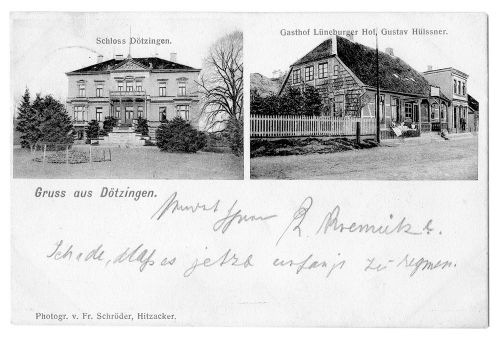 Schloss Dötzingen.
Gasthof Lüneburger Hof, Gustav Hülssner.
Gruss aus Dötzingen.
Schade, daß es jetzt anfängt zu regnen.
Photogr. v. Fr. Schröder, Hitzacker.